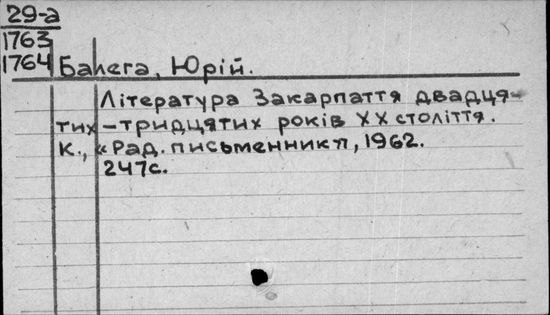 29-а
1763
1764
Балега, Юрій.
Література Закарпаття двадця-
тих-тридцятих років XX століття.
К., «Рад. письменник», 1962.
247с.